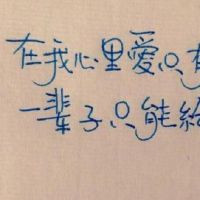 在我心里爱只有
一辈子只能给